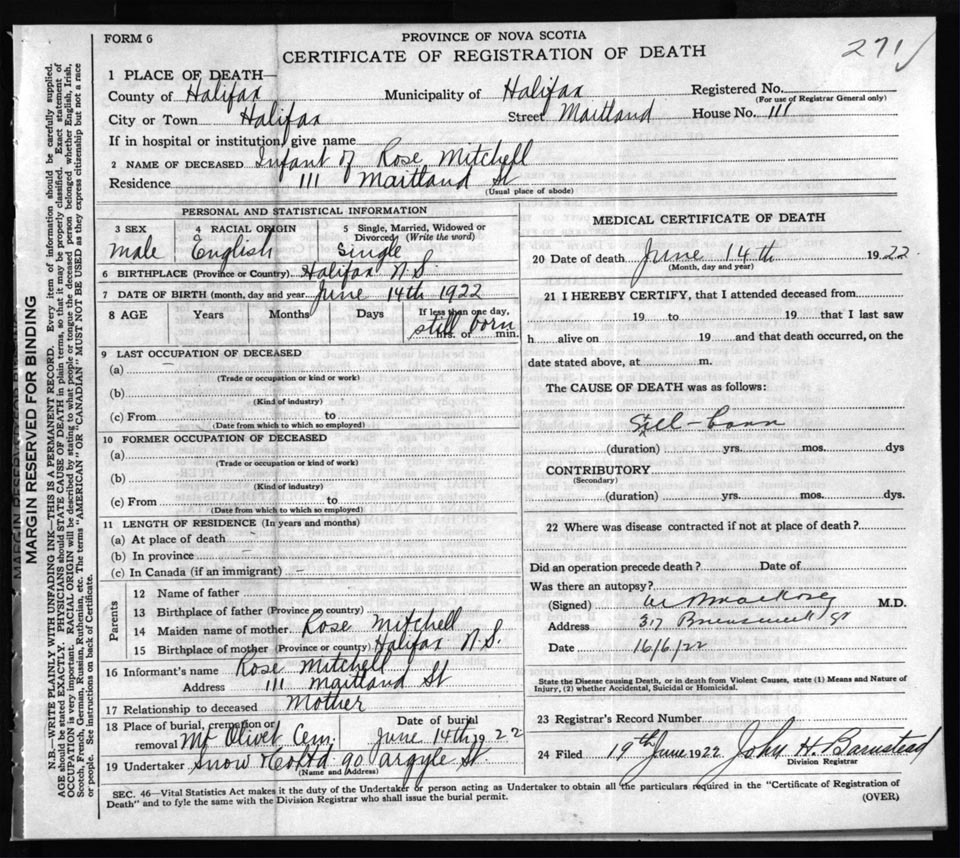 FORM 6
PROVINCE OF NOVA SCOTIA
CERTIFICATE OF REGISTRATION OF DEATH
271
1 PLACE OF DEATH—
County of Halifax Municipality of Halifax Registered No.
(For use of Registrar General only)
City or Town Halifax Street Maitland House No. 111
If in hospital or institution, give name
2 NAME OF DECEASED Infant of Rose Mitchell
Residence 111 Maitland St
(Usual place of abode)
PERSONAL AND STATISTICAL INFORMATION
3 SEX 4 RACIAL ORIGIN 5 Single, Married, Widowed or Divorced (Write the word)
Male English Single
6 BIRTHPLACE (Province or Country). Halifax N.S.
7 DATE OF BIRTH (month, day and year June 14th 1922
8 AGE Years Months Days If less than one day,
still born
hrs. or min.
9 LAST OCCUPATION OF DECEASED
(a) —
(Trade or occupation or kind or work)
(b)
(Kind of industry)
(c) From to
(Date from which to which so employed)
10 FORMER OCCUPATION OF DECEASED
(a)
(Trade or occupation or kind of work)
(b)
(Kind of industry)
(c) From to
(Date from which to which so employed)
11 LENGTH OF RESIDENCE (In years and months)
(a) At place of death
(b) In province
(c) In Canada (if an immigrant) —
Parents
12 Name of father
13 Birthplace of father (Province or country)
14 Maiden name of mother Rose Mitchell
15 Birthplace of mother (Province or country) Halifax N.S.
16 Informant's name Rose Mitchell
Address 111 Maitland St
17 Relationship to deceased Mother
18 Place of burial, cremation or removal Mt Olivet Cem. Date of burial June 14th 1922
19 Undertaker Snow & Co Ltd 90 Argyle St.
(Name and Address)
MEDICAL CERTIFICATE OF DEATH
20 Date of death June 14th 1922
(Month, day and year)
21 I HEREBY CERTIFY, that I attended deceased from
19 to 19 that I last saw
h alive on 19 and that death occurred, on the
date stated above, at m.
The CAUSE OF DEATH was as follows:
Still-born
(duration) yrs. mos. dys
CONTRIBUTORY
(Secondary)
(duration) yrs. mos. dys.
22 Where was disease contracted if not at place of death?
Did an operation precede death? Date of
Was there an autopsy?
(Signed) M.D.
Address 317 Brunswick St
Date 16/6/22
State the Disease causing Death, or in death from Violent Causes, state (1) Means and Nature of
Injury, (2) whether Accidental, Suicidal or Homicidal.
23 Registrar's Record Number
24 Filed 19th June 1922 John H. Barnstead
Division Registrar
SEC. 46—Vital Statistics Act makes it the duty of the Undertaker or person acting as Undertaker to obtain all the particulars required in the "Certificate of Registration of
Death" and to fyle the same with the Division Registrar who shall issue the burial permit.
(OVER)
MARGIN RESERVED FOR BINDING
N.B.—WRITE PLAINLY WITH UNFADING INK—THIS IS A PERMANENT RECORD. Every item of information should be carefully supplied.
AGE should be stated EXACTLY. PHYSICIANS should STATE CAUSE OF DEATH in plain terms, so that it may be properly classified. Exact statement of
OCCUPATION is very important. RACIAL ORIGIN will be described by stating to what people or tongue the deceased person belonged whether English, Irish,
Scotch, French, German, Russian, Ruthenian, etc. The terms "AMERICAN" OR "CANADIAN" MUST NOT BE USED as they express citizenship but not a race
or people. See instructions on back of Certificate.